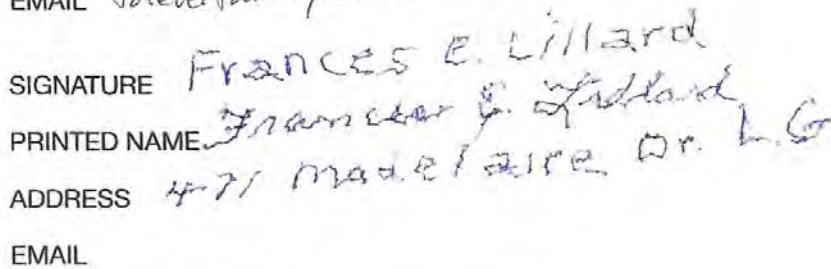 EMAIL
SIGNATURE Frances E. Lillard
PRINTED NAME Frances E. Lillard
ADDRESS 471 madelaire Dr. L.G
EMAIL